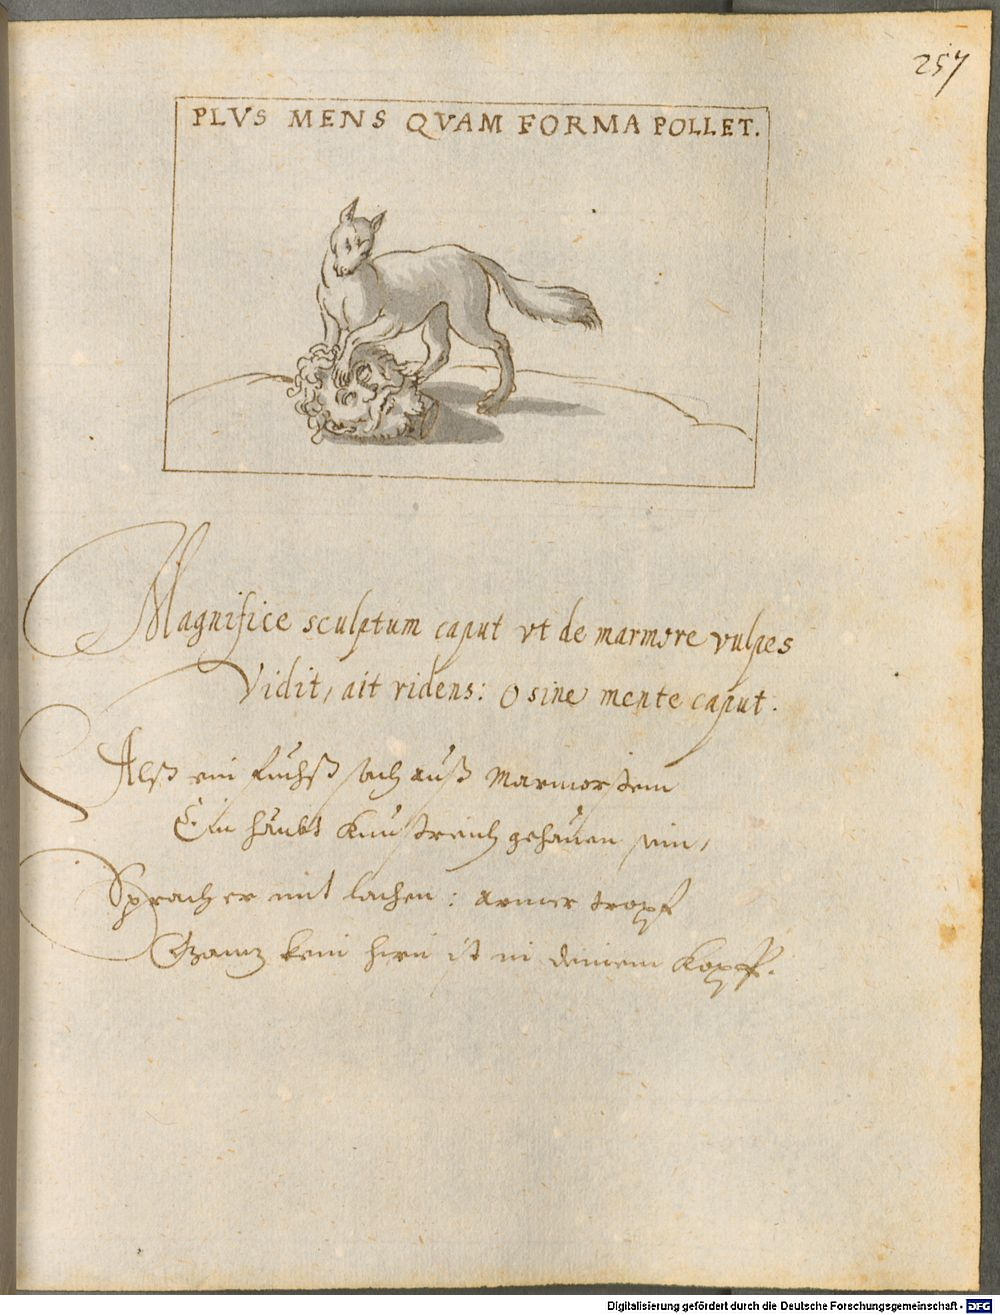 257
PLVS MENS QVAM FORMA POLLET.
Magnifice sculptum caput vt de marmore vulpes
Vidit, ait ridens: O sine mente caput.
Alß ein fuchß sach auß Marmorstein
Ein haubt Kunstreich gehauen sein,
Sprach er mit lachen: armer tropf
Gantz kein hirn ist in deinem Kopff.
Digitalisierung gefördert durch die Deutsche Forschungsgemeinschaft - DFG